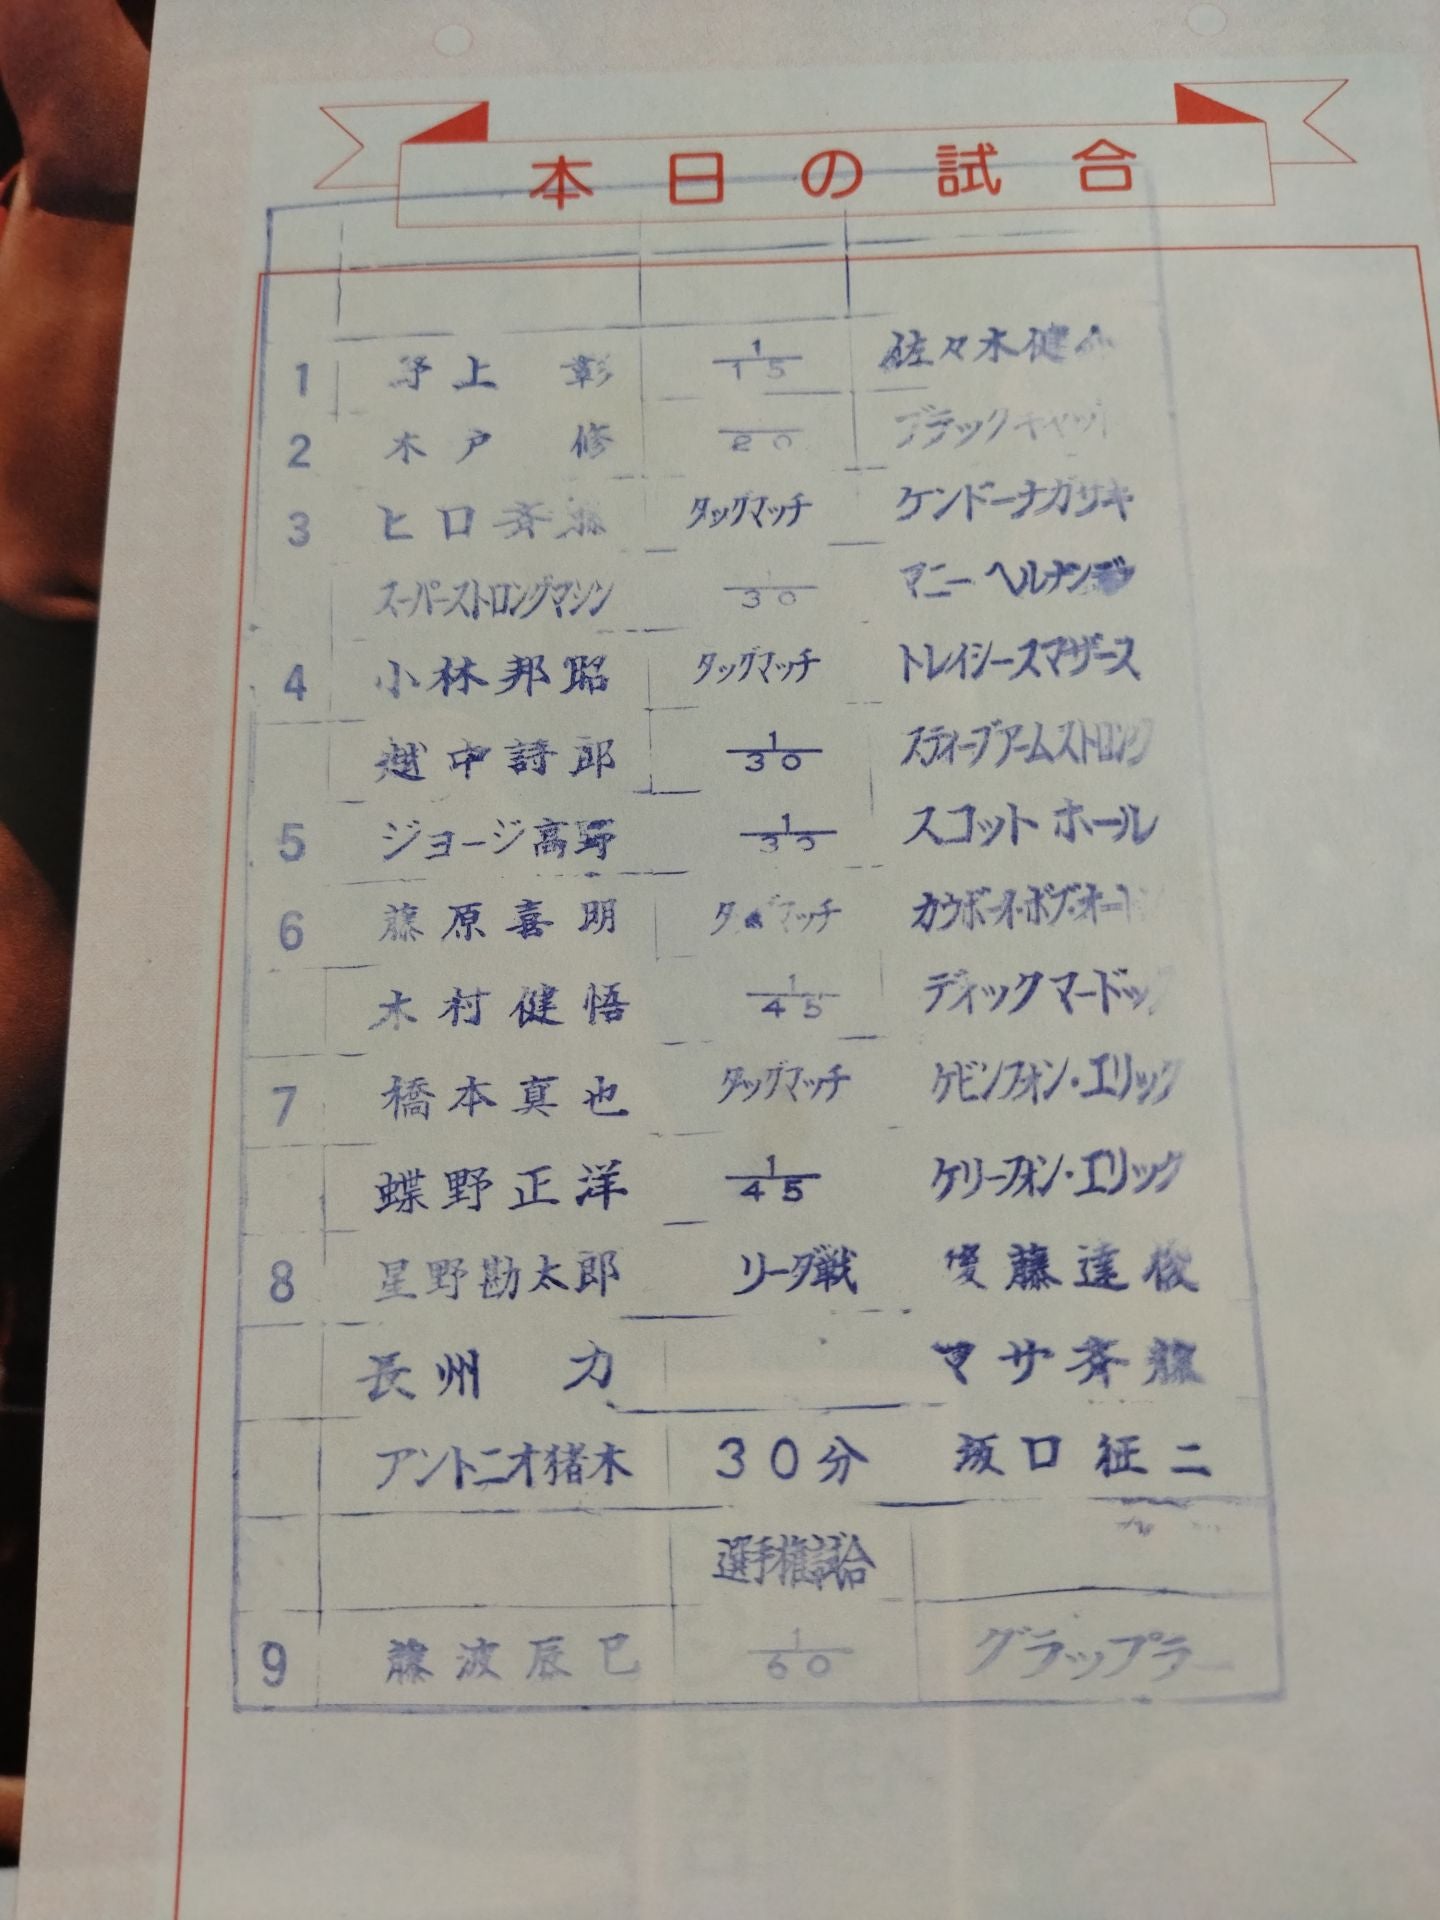 本日の試合
1 野上 彰 1/15 佐々木健
2 木戸 修 20 ブラックキャット
3 ヒロ斉藤 タッグマッチ ケンドーナガサキ
スーパーストロングマシン 30 マニーヘルナンデ
4 小林邦昭 タッグマッチ トレイシースマザース
越中詩郎 1/30 スティーブアームストロング
5 ジョージ高野 1/30 スコットホール
6 藤原喜明 タッグマッチ カウボーイ・ボブ・オートン
木村健悟 1/45 ディックマードック
7 橋本真也 タッグマッチ ケビンフォン・エリック
蝶野正洋 1/45 ケリーフォン・エリック
8 星野勘太郎 リーダ戦 後藤達俊
長州 力 マサ斉藤
アントニオ猪木 30分 坂口征二
選手権試合
9 藤波辰巳 1/60 グラップラー